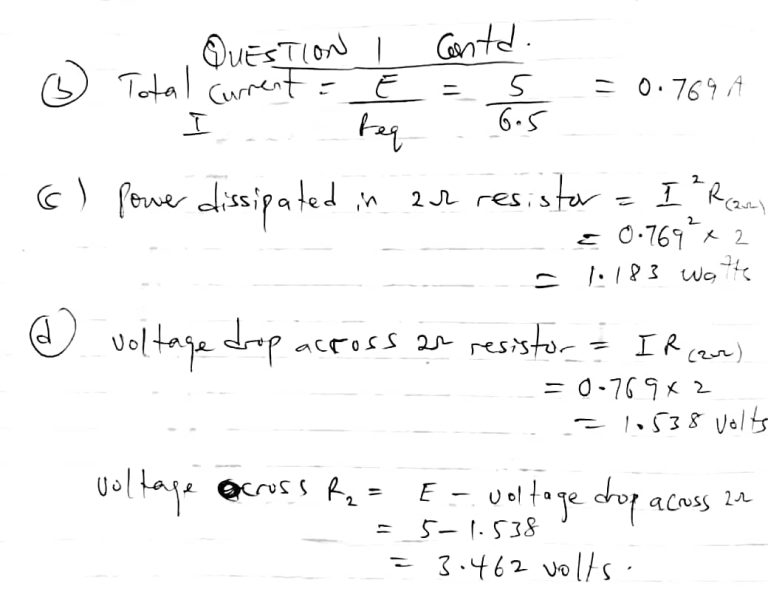 QUESTION 1 Contd.
(b) Total current = E/Req = 5/6.5 = 0.769 A
I
(c) Power dissipated in 2Ω resistor = I²R(2Ω)
= 0.769² × 2
= 1.183 watts
(d) voltage drop across 2Ω resistor = IR(2Ω)
= 0.769 × 2
= 1.538 volts
voltage across R₂ = E - voltage drop across 2Ω
= 5 - 1.538
= 3.462 volts.